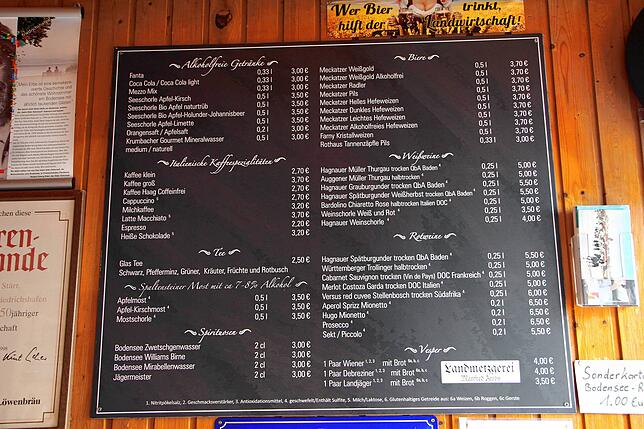 Wer Bier trinkt,
hilft der Landwirtschaft!
Alkoholfreie Getränke
Fanta 0,33 l 3,00 €
Coca Cola / Coca Cola light 0,33 l 3,00 €
Mezzo Mix 0,33 l 3,00 €
Seeschorle Apfel-Kirsch 0,5 l 3,50 €
Seeschorle Bio Apfel naturtrüb 0,5 l 3,50 €
Seeschorle Bio Apfel-Holunder-Johannisbeer 0,5 l 3,50 €
Seeschorle Apfel-Limette 0,5 l 3,50 €
Orangensaft / Apfelsaft 0,2 l 3,00 €
Krumbacher Gourmet Mineralwasser 0,5 l 3,00 €
medium / naturell
Italienische Kaffeespezialitäten
Kaffee klein 2,70 €
Kaffee groß 3,70 €
Kaffee Haag Coffeinfrei 2,70 €
Cappuccino 5 3,20 €
Milchkaffee 3,20 €
Latte Macchiato 5 3,70 €
Espresso 2,20 €
Heiße Schokolade 5 3,20 €
Tee
Glas Tee 2,50 €
Schwarz, Pfefferminz, Grüner, Kräuter, Früchte und Rotbusch
Spaltensteiner Most mit ca 7-8% Alkohol
Apfelmost 4 0,5 l 3,50 €
Apfel-Kirschmost 4 0,5 l 3,50 €
Mostschorle 4 0,5 l 3,50 €
Spirituosen
Bodensee Zwetschgenwasser 2 cl 3,00 €
Bodensee Williams Birne 2 cl 3,00 €
Bodensee Mirabellenwasser 2 cl 3,00 €
Jägermeister 2 cl 3,00 €
Biere
Meckatzer Weißgold 0,5 l 3,70 €
Meckatzer Weißgold Alkoholfrei 0,5 l 3,70 €
Meckatzer Radler 0,5 l 3,70 €
Meckatzer Pils 0,5 l 3,70 €
Meckatzer Helles Hefeweizen 0,5 l 3,70 €
Meckatzer Dunkles Hefeweizen 0,5 l 3,70 €
Meckatzer Leichtes Hefeweizen 0,5 l 3,70 €
Meckatzer Alkoholfreies Hefeweizen 0,5 l 3,70 €
Farny Kristallweizen 0,5 l 3,70 €
Rothaus Tannenzäpfle Pils 0,33 l 3,00 €
Weißweine
Hagnauer Müller Thurgau trocken QbA Baden 4 0,25 l 5,00 €
Auggener Müller Thurgau halbtrocken 4 0,25 l 5,00 €
Hagnauer Grauburgunder trocken QbA Baden 4 0,25 l 5,50 €
Hagnauer Spätburgunder Weißherbst trocken QbA Baden 4 0,25 l 5,50 €
Bardolino Chiaretto Rose halbtrocken Italien DOC 4 0,25 l 5,00 €
Weinschorle Weiß und Rot 4 0,25 l 3,50 €
Hagnauer Weinschorle 4 0,25 l 4,00 €
Rotweine
Hagnauer Spätburgunder trocken QbA Baden 4 0,25 l 5,50 €
Württemberger Trollinger halbtrocken 4 0,25 l 5,00 €
Cabernet Sauvignon trocken (Vin de Pays) DOC Frankreich 4 0,25 l 5,00 €
Merlot Costoza Garda trocken DOC Italien 4 0,25 l 5,00 €
Versus red cuvee Stellenbosch trocken Südafrika 4 0,25 l 6,00 €
Aperol Sprizz Mionetto 4 0,2 l 6,50 €
Hugo Mionetto 4 0,2 l 6,50 €
Prosecco 4 0,2 l 6,50 €
Sekt / Piccolo 4 0,2 l 5,50 €
Vesper
1 Paar Wiener 1, 2, 3 mit Brot 6a, b, c 4,00 €
1 Paar Debreziner 1, 2, 3 mit Brot 6a, b, c 4,00 €
1 Paar Landjäger 1, 2, 3 mit Brot 6a, b, c 3,50 €
Landmetzgerei
1. Nitritpökelsalz, 2. Geschmacksverstärker, 3. Antioxidationsmittel, 4. geschwefelt/Enthält Sulfite, 5. Milch/Laktose, 6. Glutenhaltiges Getreide aus: 6a Weizen, 6b Roggen, 6c Gerste
Sonderkarte
Bodensee-
1.00 Eu
Löwenbräu